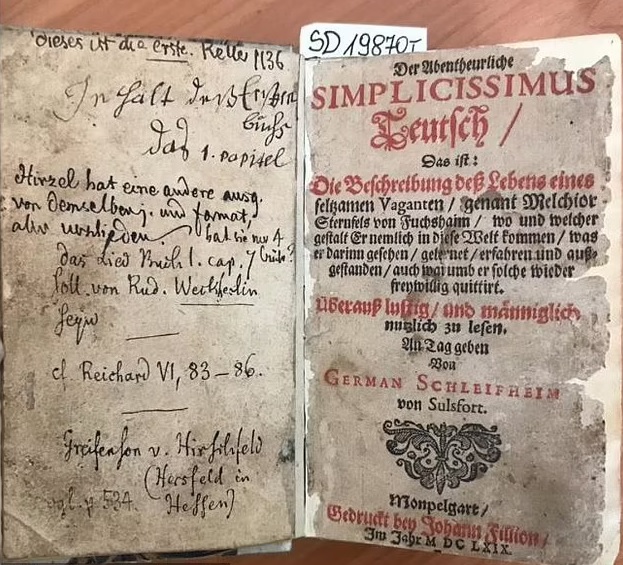 dieses ist die erste. Keller 1136
Inhalt deß Ersten
buchs
das 1. capitel
Hirzel hat eine andere ausg.
von demselben j. und format,
aber
hat sie nur 4
das Lied Buch 1. cap. 7
soll von Rud. Weckherlin
seyn
cf. Reichard VI, 83-86.
Greifenson v. Hirschfeld
(Hersfeld in
vgl. p 534. Hessen)
SD 19870T
Der Abentheurliche
SIMPLICISSIMUS
Teutsch /
Das ist:
Die Beschreibung deß Lebens eines
seltzamen Vaganten / genant Melchior
Sternfels von Fuchshaim / wo und welcher
gestalt Er nemlich in diese Welt kommen / was
er darinn gesehen / gelernet / erfahren und auß-
gestanden / auch warumb er solche wieder
freywillig quittirt.
Überauß lustig / und männiglich
nutzlich zu lesen.
An Tag geben
Von
GERMAN SCHLEIFHEIM
von Sulsfort.
Monpelgart /
Gedruckt bey Johann Fillion /
Im Jahr M DC LXIX.